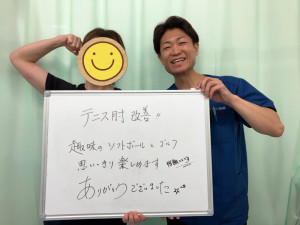 テニス肘 改善!!
趣味の ソフトボールとゴルフ
思いっきり楽しめます
ありがとうございました